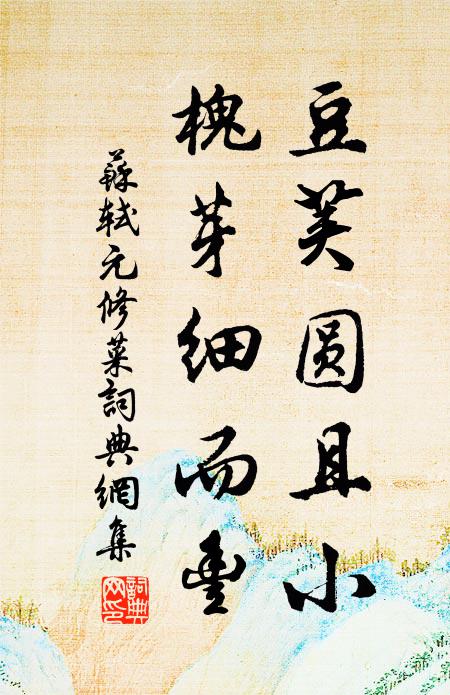 豆荚圆且小
槐芽细而丰
苏轼元修菜詞典網集
詞典网印